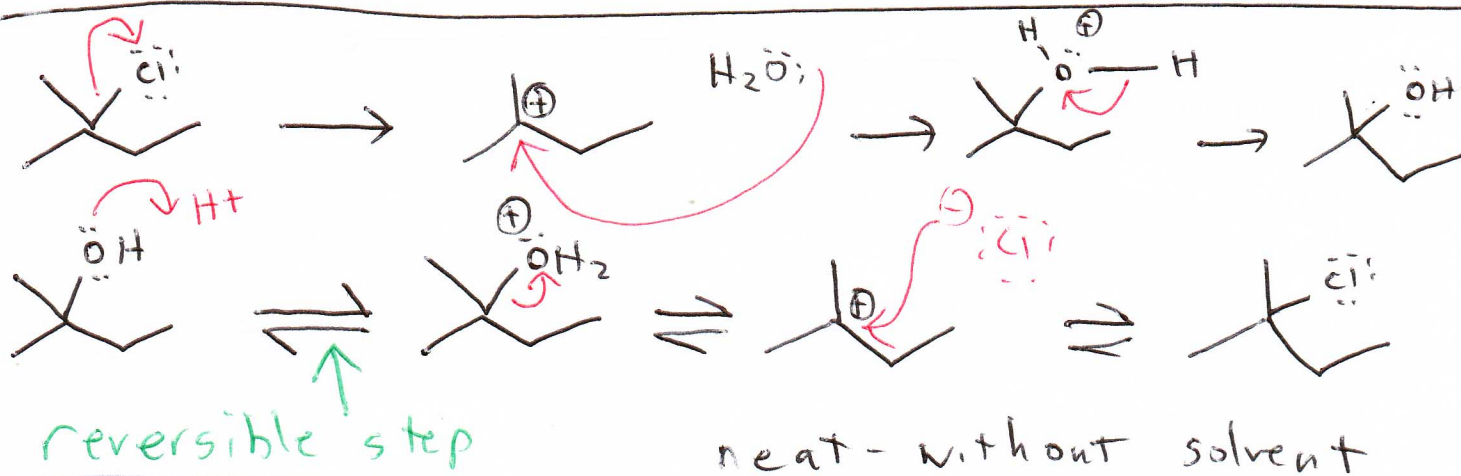 Cl
⊕
H₂O
H
⊕
O
H
OH
H+
OH
⊕
OH₂
⊕
⊖
Cl
Cl
reversible step
neat - without solvent